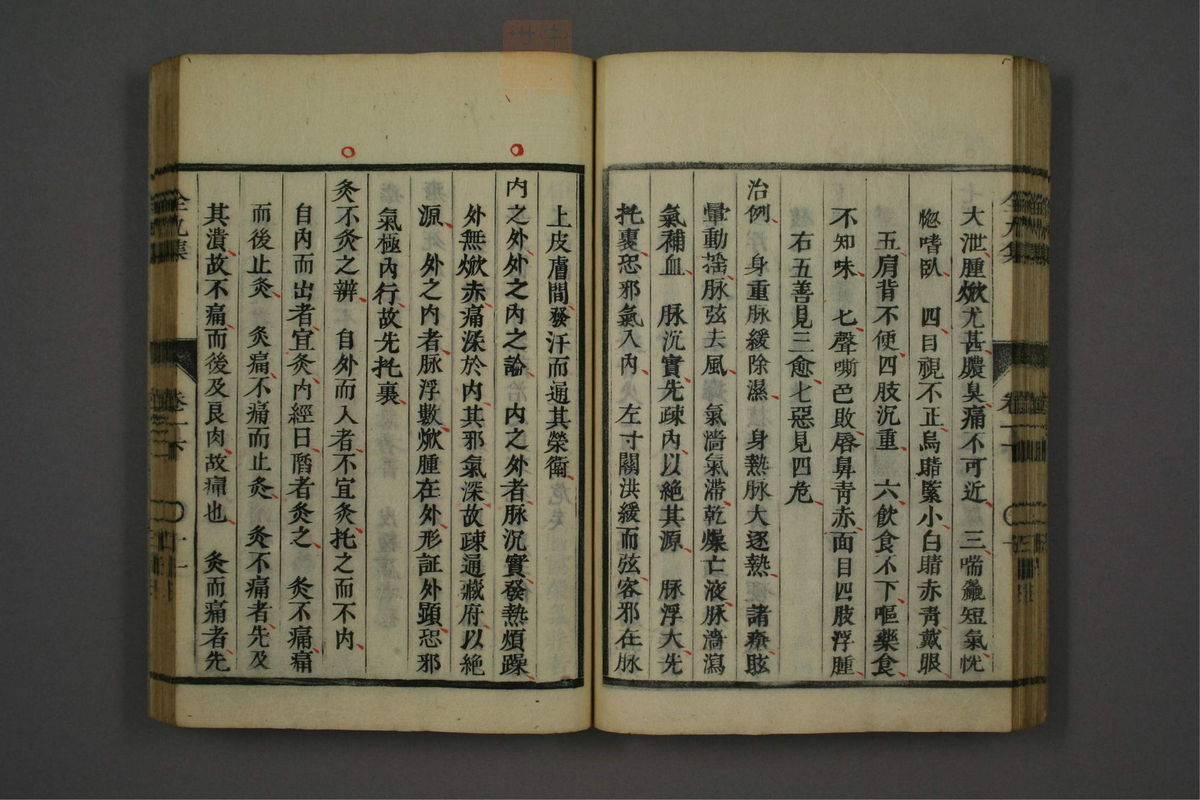 大泄、腫焮尤甚、膿臭痛不可近、三喘麤短氣恍
惚嗜臥、四目視不正、烏睛緊小、白睛赤靑戴眼、
五肩背不便、四肢沉重、六飮食不下、嘔藥食
不知味、七聲嘶色敗、唇鼻青赤、面目四肢浮腫、
右五善見三愈、七惡見四危、
治例、身重脉緩除濕、身熱脉大逐熱、諸痒眩
暈動搖、脉弦去風、氣濇氣滯乾燥亡液脉濇瀉
氣補血、脉沉實先疎內、以絕其源、脉浮大先
托裏、恐邪氣入內、左寸關洪緩而弦、客邪在脉
上皮膚間、發汗而通其榮衛、
內之外、外之內之論、內之外者、脉沉實、發熱煩躁、
外無焮赤痛、深於內、其邪氣深、故疎通藏府、以絕
源、外之內者、脉浮數、焮腫在外、形証外顯、恐邪
氣極內行、故先托裏、
灸不灸之辨、自外而入者、不宜灸、托之而不內、
自內而出者、宜灸、內經曰、陷者灸之、灸不痛、痛
而後止灸、灸痛不痛而止灸、灸不痛者、先及
其潰、故不痛、而後及良肉、故痛也、灸而痛者、先
全九集
卷一下
十一
全九集
卷一下
十